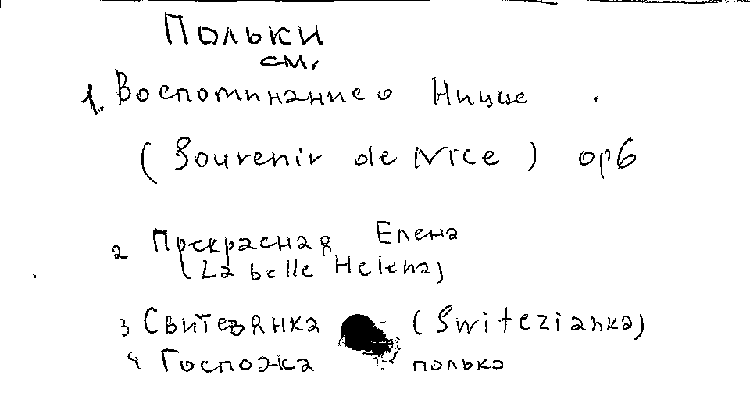 Польки
см.
1. Воспоминание о Ницце
(Souvenir de Nice) op6
2 Прекрасная Елена
(La belle Helena)
3 Свитезянка (Switezianka)
4 Госпожа полька